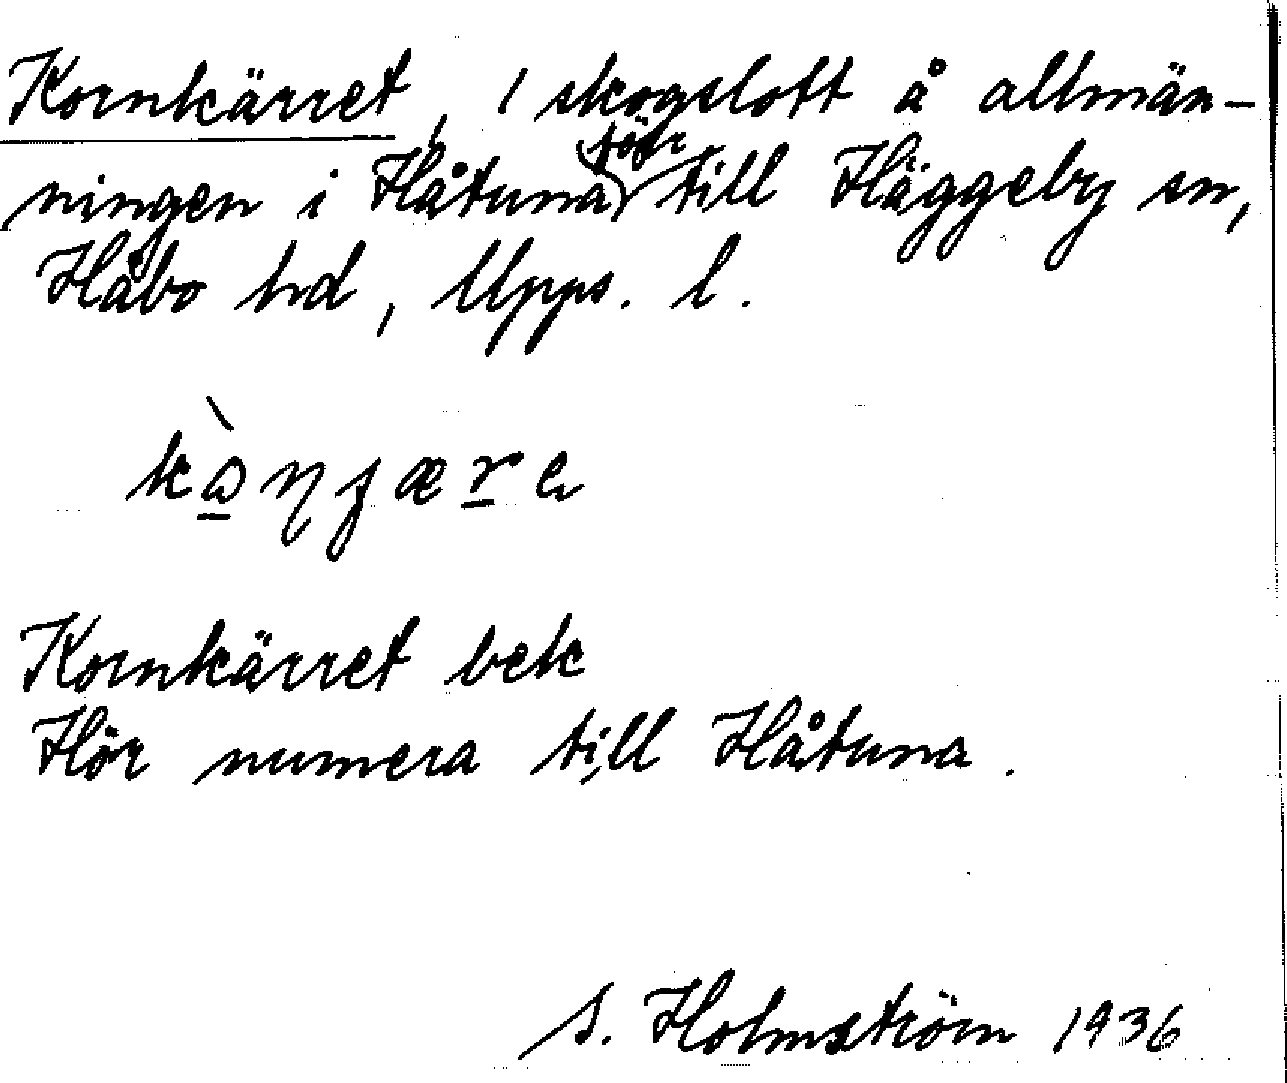 Kornkärret, 1 skogslott å allmän-
ningen i Håtuna till Häggeby sn,
Håbo hd, Upps. l.
Kornkärret bek
Hör numera till Håtuna.
S. Holmström 1936